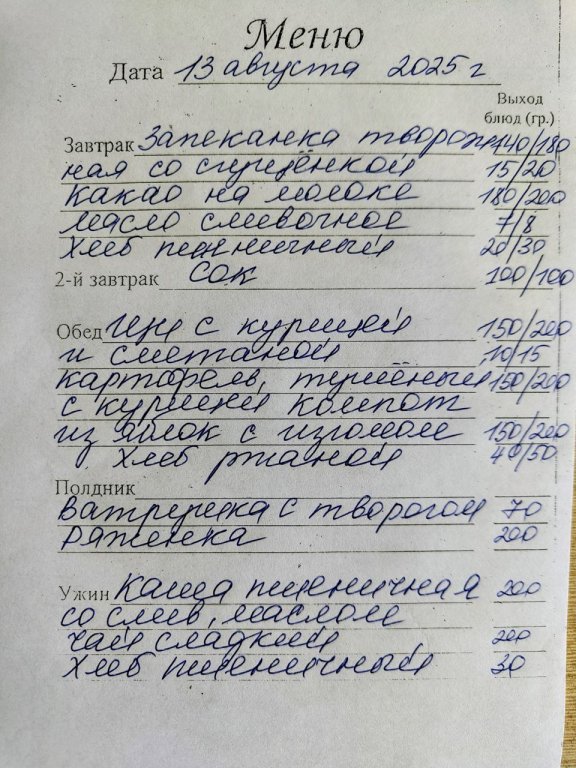 Меню
Дата 13 августа 2025 г
Выход
блюд (гр.)
Завтрак Запеканка творож 140/180
ная со сгущёнкой 15/20
Какао на молоке 180/200
Масло сливочное 7/8
Хлеб пшеничный 20/30
2-й завтрак Сок 100/100
Обед Щи с курицей 150/200
и сметаной 10/15
Картофель, тушёный 150/200
с курицей Компот
из яблок с изюмом 150/200
Хлеб ржаной 40/50
Полдник
Ватрушка с творогом 70
Ряженка 200
Ужин Каша пшеничная 200
со слив, маслом
чай сладкий 200
Хлеб пшеничный 30